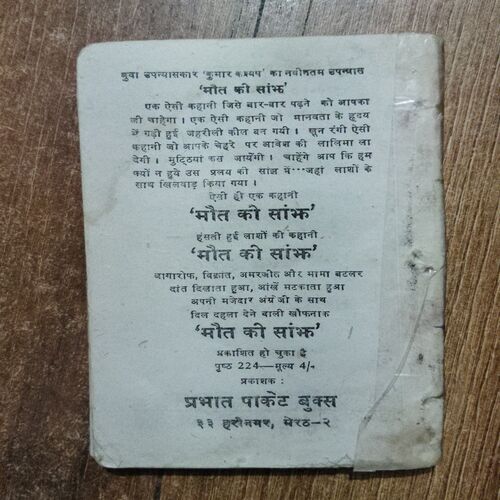 युवा उपन्यासकार 'कुमार कश्यप' का नवीनतम उपन्यास
'मौत की सांझ'
एक ऐसी कहानी जिसे बार-बार पढ़ने को आपका
जी चाहेगा । एक ऐसी कहानी जो मानवता के हृदय
में गढ़ी हुई जहरीली कील बन गयी । खून रंगी ऐसी
कहानी जो आपके चेहरे पर आवेश की लालिमा ला
देगी । मुट्ठियां कस जायेंगी । चाहेंगे आप कि हम
क्यों न हुये उस प्रलय की सांझ में···जहां लाशों के
साथ खिलवाड़ किया गया ।
ऐसी ही एक कहानी
'मौत की सांझ'
हंसती हुई लाशों की कहानी
'मौत की सांझ'
बागारोफ, विक्रांत, अमरजीत और मामा बटलर
दांत दिखाता हुआ, आंखें मटकाता हुआ
अपनी मजेदार अंग्रेजी के साथ
दिल दहला देने वाली खौफनाक
'मौत की सांझ'
प्रकाशित हो चुका है
पृष्ठ 224—मूल्य 4/-
प्रकाशक :
प्रभात पाकेट बुक्स
३३ हरीनगर, मेरठ-२